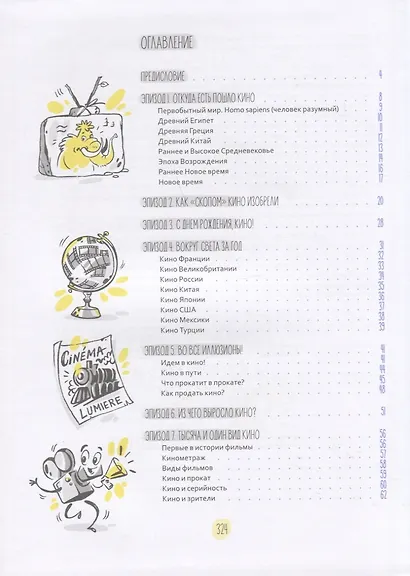 ОГЛАВЛЕНИЕ
ПРЕДИСЛОВИЕ 4
ЭПИЗОД 1. ОТКУДА ЕСТЬ ПОШЛО КИНО 8
Первобытный мир. Homo sapiens (человек разумный) 9
Древний Египет 10
Древняя Греция 11
Древний Китай 12
Раннее и Высокое Средневековье 13
Эпоха Возрождения 14
Раннее Новое время 16
Новое время 17
ЭПИЗОД 2. КАК «СКОПОМ» КИНО ИЗОБРЕЛИ 20
ЭПИЗОД 3. С ДНЕМ РОЖДЕНИЯ, КИНО! 28
ЭПИЗОД 4. ВОКРУГ СВЕТА ЗА ГОД 31
Кино Франции 32
Кино Великобритании 33
Кино России 34
Кино Китая 35
Кино Японии 36
Кино США 37
Кино Мексики 38
Кино Турции 39
CINÉMA
LUMIERE
ЭПИЗОД 5. ВО ВСЕ ИЛЛЮЗИОНЫ! 41
Идем в кино! 41
Кино в пути 44
Что прокатит в прокате? 45
Как продать кино? 48
ЭПИЗОД 6. ИЗ ЧЕГО ВЫРОСЛО КИНО? 51
ЭПИЗОД 7. ТЫСЯЧА И ОДИН ВИД КИНО 56
Первые в истории фильмы 56
Кинометраж 57
Виды фильмов 58
Кино и прокат 59
Кино и серийность 60
Кино и зрители 62
324